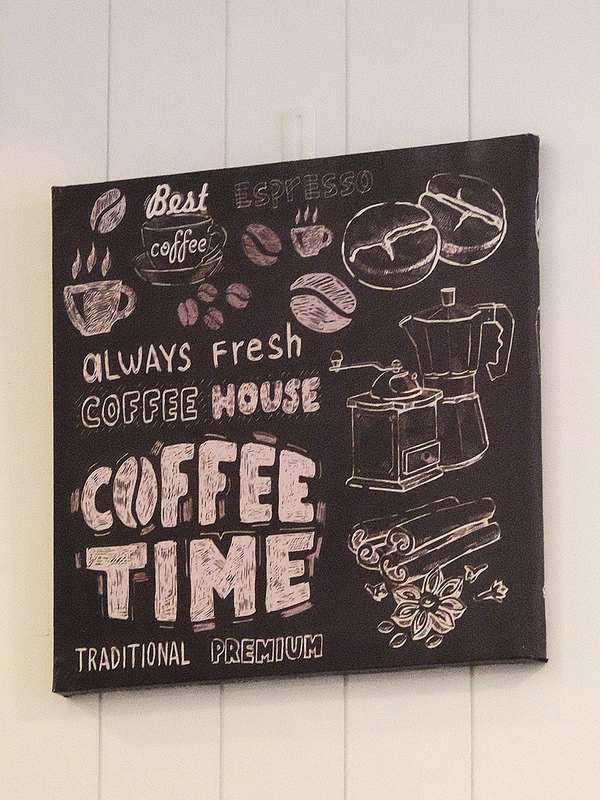 Best ESPRESSO
coffee
ALWAYS Fresh
COFFEE HOUSE
COFFEE
TIME
TRADITIONAL PREMIUM